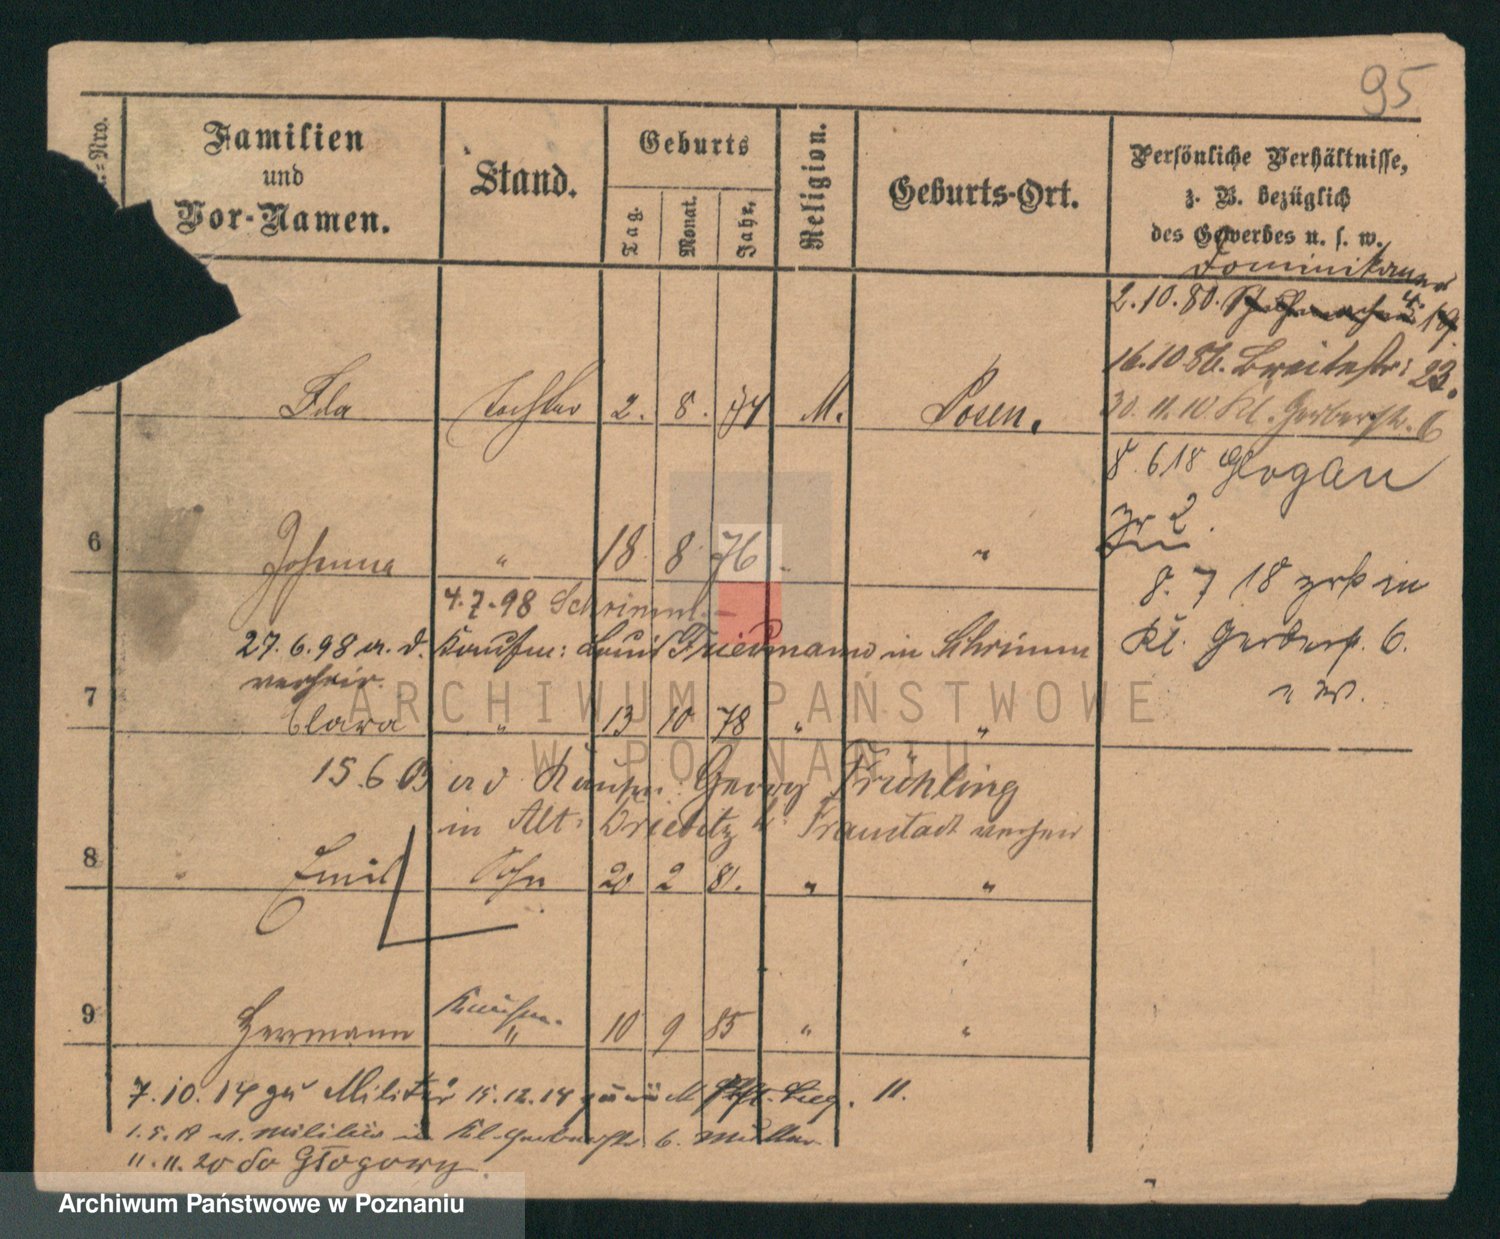 95
Nro.
Familien
und
Vor-Namen.
Stand.
Geburts
Tag.
Monat.
Jahr.
Religion.
Geburts-Ort.
Persönliche Verhältnisse,
z. B. bezüglich
des Gewerbes u. s. w.
Dominikaner
2.10.80. 4.
16.10.86. Breitestr: 23.
Ida Tochter 2. 8. 74 M. Posen.
30.11.10 Kl. Gerberstr. 6
8.6 18 Glogau
zr 2.
6 Johanna " 18 8 76 "
8. 7 18 zrk in
4.7.98 Schrimm.
27.6.98 a. d. Kaufm: Louis Friedmann in Schrimm
Kl. Gerberst. 6.
verheir.
7 Clara " 13 10 78 " "
15.6 03 a d Kaufm. Georg Frühling
in Alt-Driebitz b. Fraustadt verheir
8 Emil Sohn 20 2 81. " "
Kaufm.
9 Herrmann " 10 9 85 " "
7.10.14 zu Militär 15.12.14 11.
1.5.18 v. Militär in Kl. Gerberstr 6. Mutter
11.11.20 do Głogowy.
ARCHIWUM PAŃSTWOWE
W POZNANIU
Archiwum Państwowe w Poznaniu